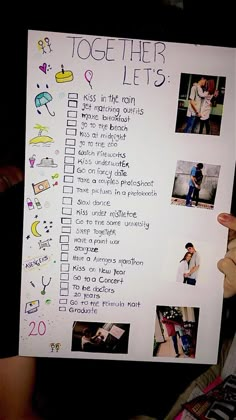 TOGETHER
LET'S:
Kiss in the rain
Get matching outfits
Make breakfast
Go to the beach
Kiss at midnight
Go to the zoo
Watch fireworks
Kiss underwater
Go on fancy date
Take a couples photoshoot
Take pictures in a photobooth
Slow dance
Kiss under mistletoe
Go to the same university
Sleep together
Have a paint war
Stargaze
Have a Avengers marathon
Kiss on New Year
Go to a Concert
To the doctors
20 years
Go to the
Graduate
20